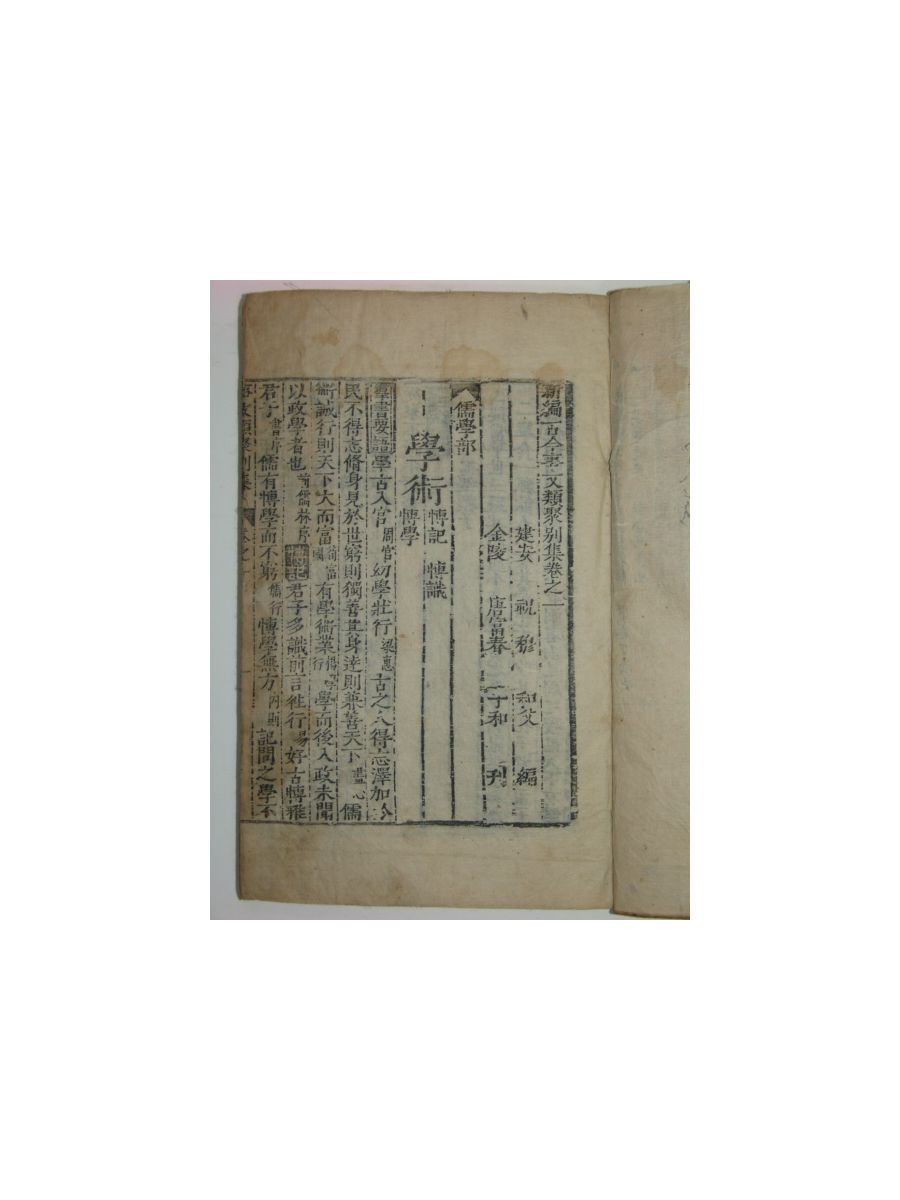 新編古今事文類聚別集卷之一
建安 祝 穆 和父 編
金陵 唐富春 子和 刊
儒學部
學術 博記 博識 博學
羣書要語學古入官周官幼學壯行梁惠古之人得志澤加於
民不得志脩身見於世窮則獨善其身達則兼善天下盡心儒
術誠行則天下大而富荀富國有學術業楊學行學而後入政未聞
以政學者也前儒林傳博記君子多識前言徃行易好古博雅
君子書序儒有博學而不窮儒行博學無方內則記問之學不
事文類聚別集 卷之一